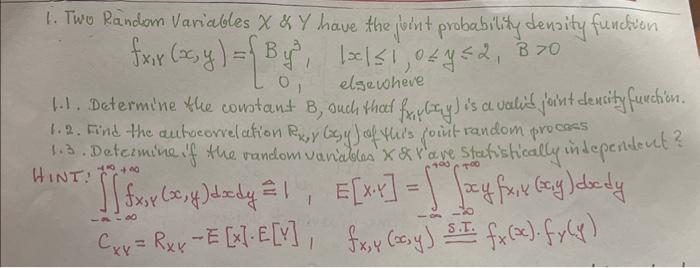 1. Two Random Variables X & Y have the joint probability density function
f_{X,Y}(x,y) = { B y^3, |x| ≤ 1, 0 ≤ y ≤ 2, B > 0
0, elsewhere
1.1. Determine the constant B, such that f_{X,Y}(x,y) is a valid joint density function.
1.2. Find the autocorrelation R_{X,Y}(x,y) of this joint random process
1.3. Determine if the random variables X & Y are statistically independent?
HINT: ∫_{-∞}^{+∞} ∫_{-∞}^{+∞} f_{X,Y}(x,y) dx dy ≙ 1, E[X·Y] = ∫_{-∞}^{+∞} ∫_{-∞}^{+∞} xy f_{X,Y}(x,y) dx dy
C_{XY} = R_{XY} - E[X]·E[Y], f_{X,Y}(x,y) \overset{S.I.}{=} f_X(x)·f_Y(y)